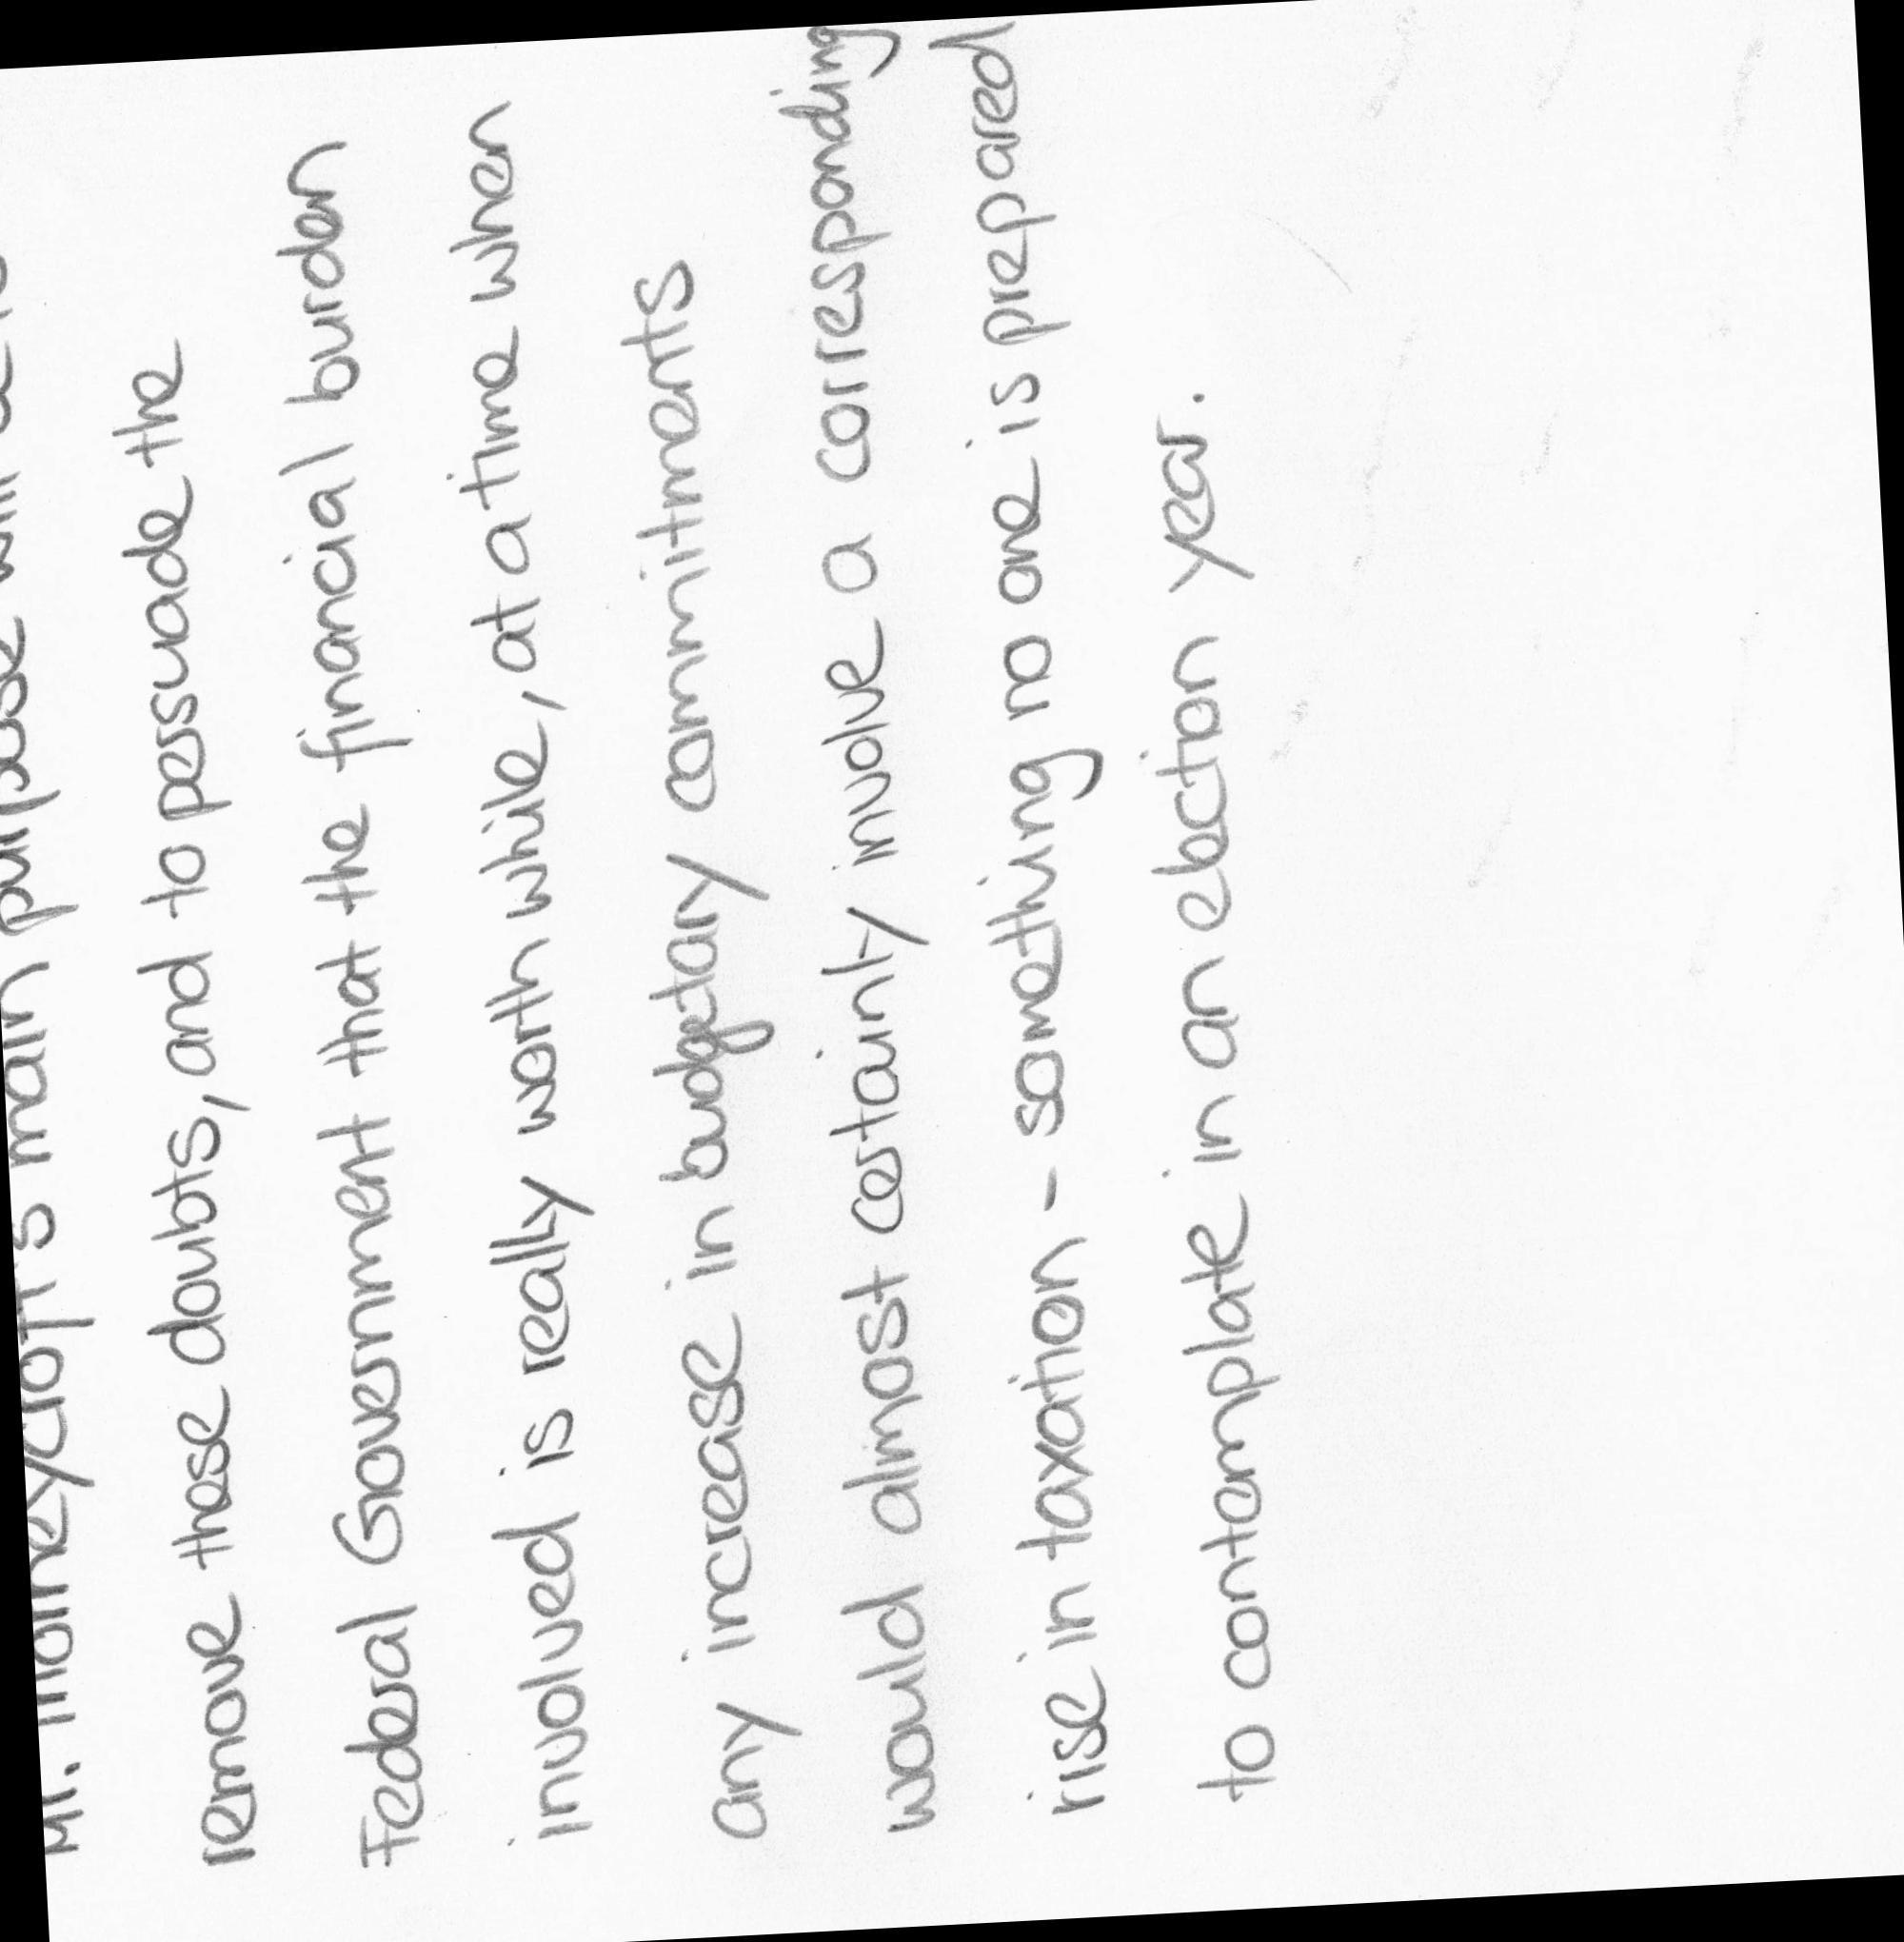 Mr. Thorneycroft's main purpose will
remove these doubts, and to persuade the
Federal Government that the financial burden
involved is really worth while, at a time when
any increase in budgetary commitments
would almost certainly involve a corresponding
rise in taxation - something no one is prepared
to contemplate in an election year.